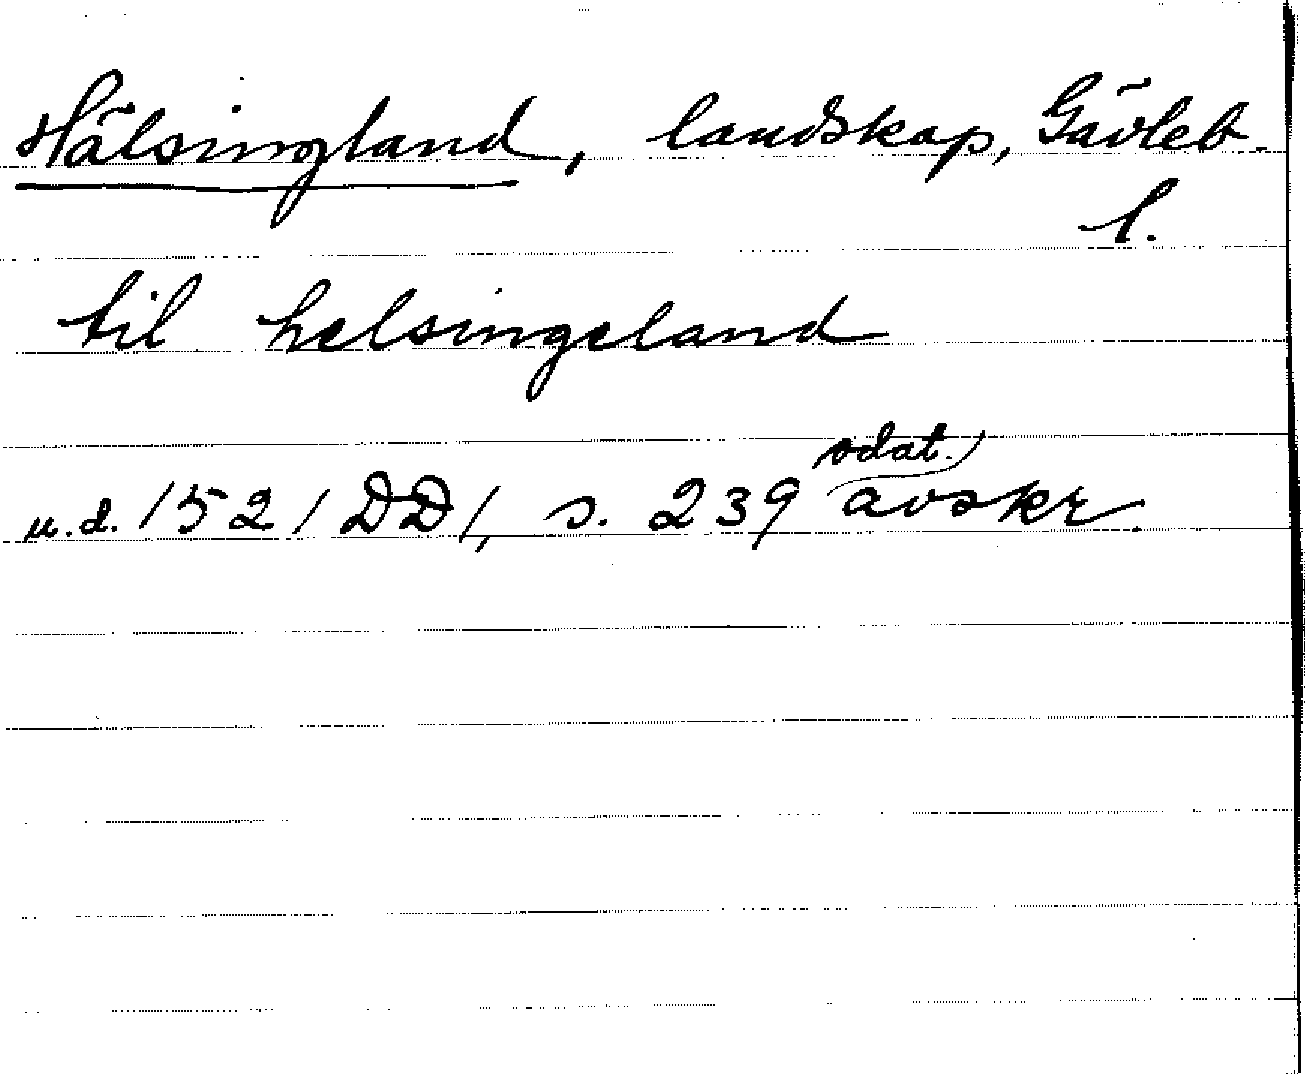 Hälsingland, landskap, Gävleb.
l.
til helsingeland
odat.
u.d. /521 DD/, s. 239 avskr.